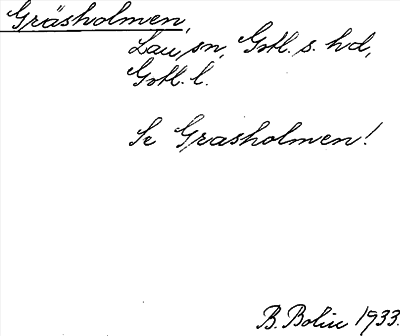 Gräsholmen,
Lau, sn, Gotl. s. hd,
Gotl. l.
Se Grasholmen!
B. Bolin 1933.